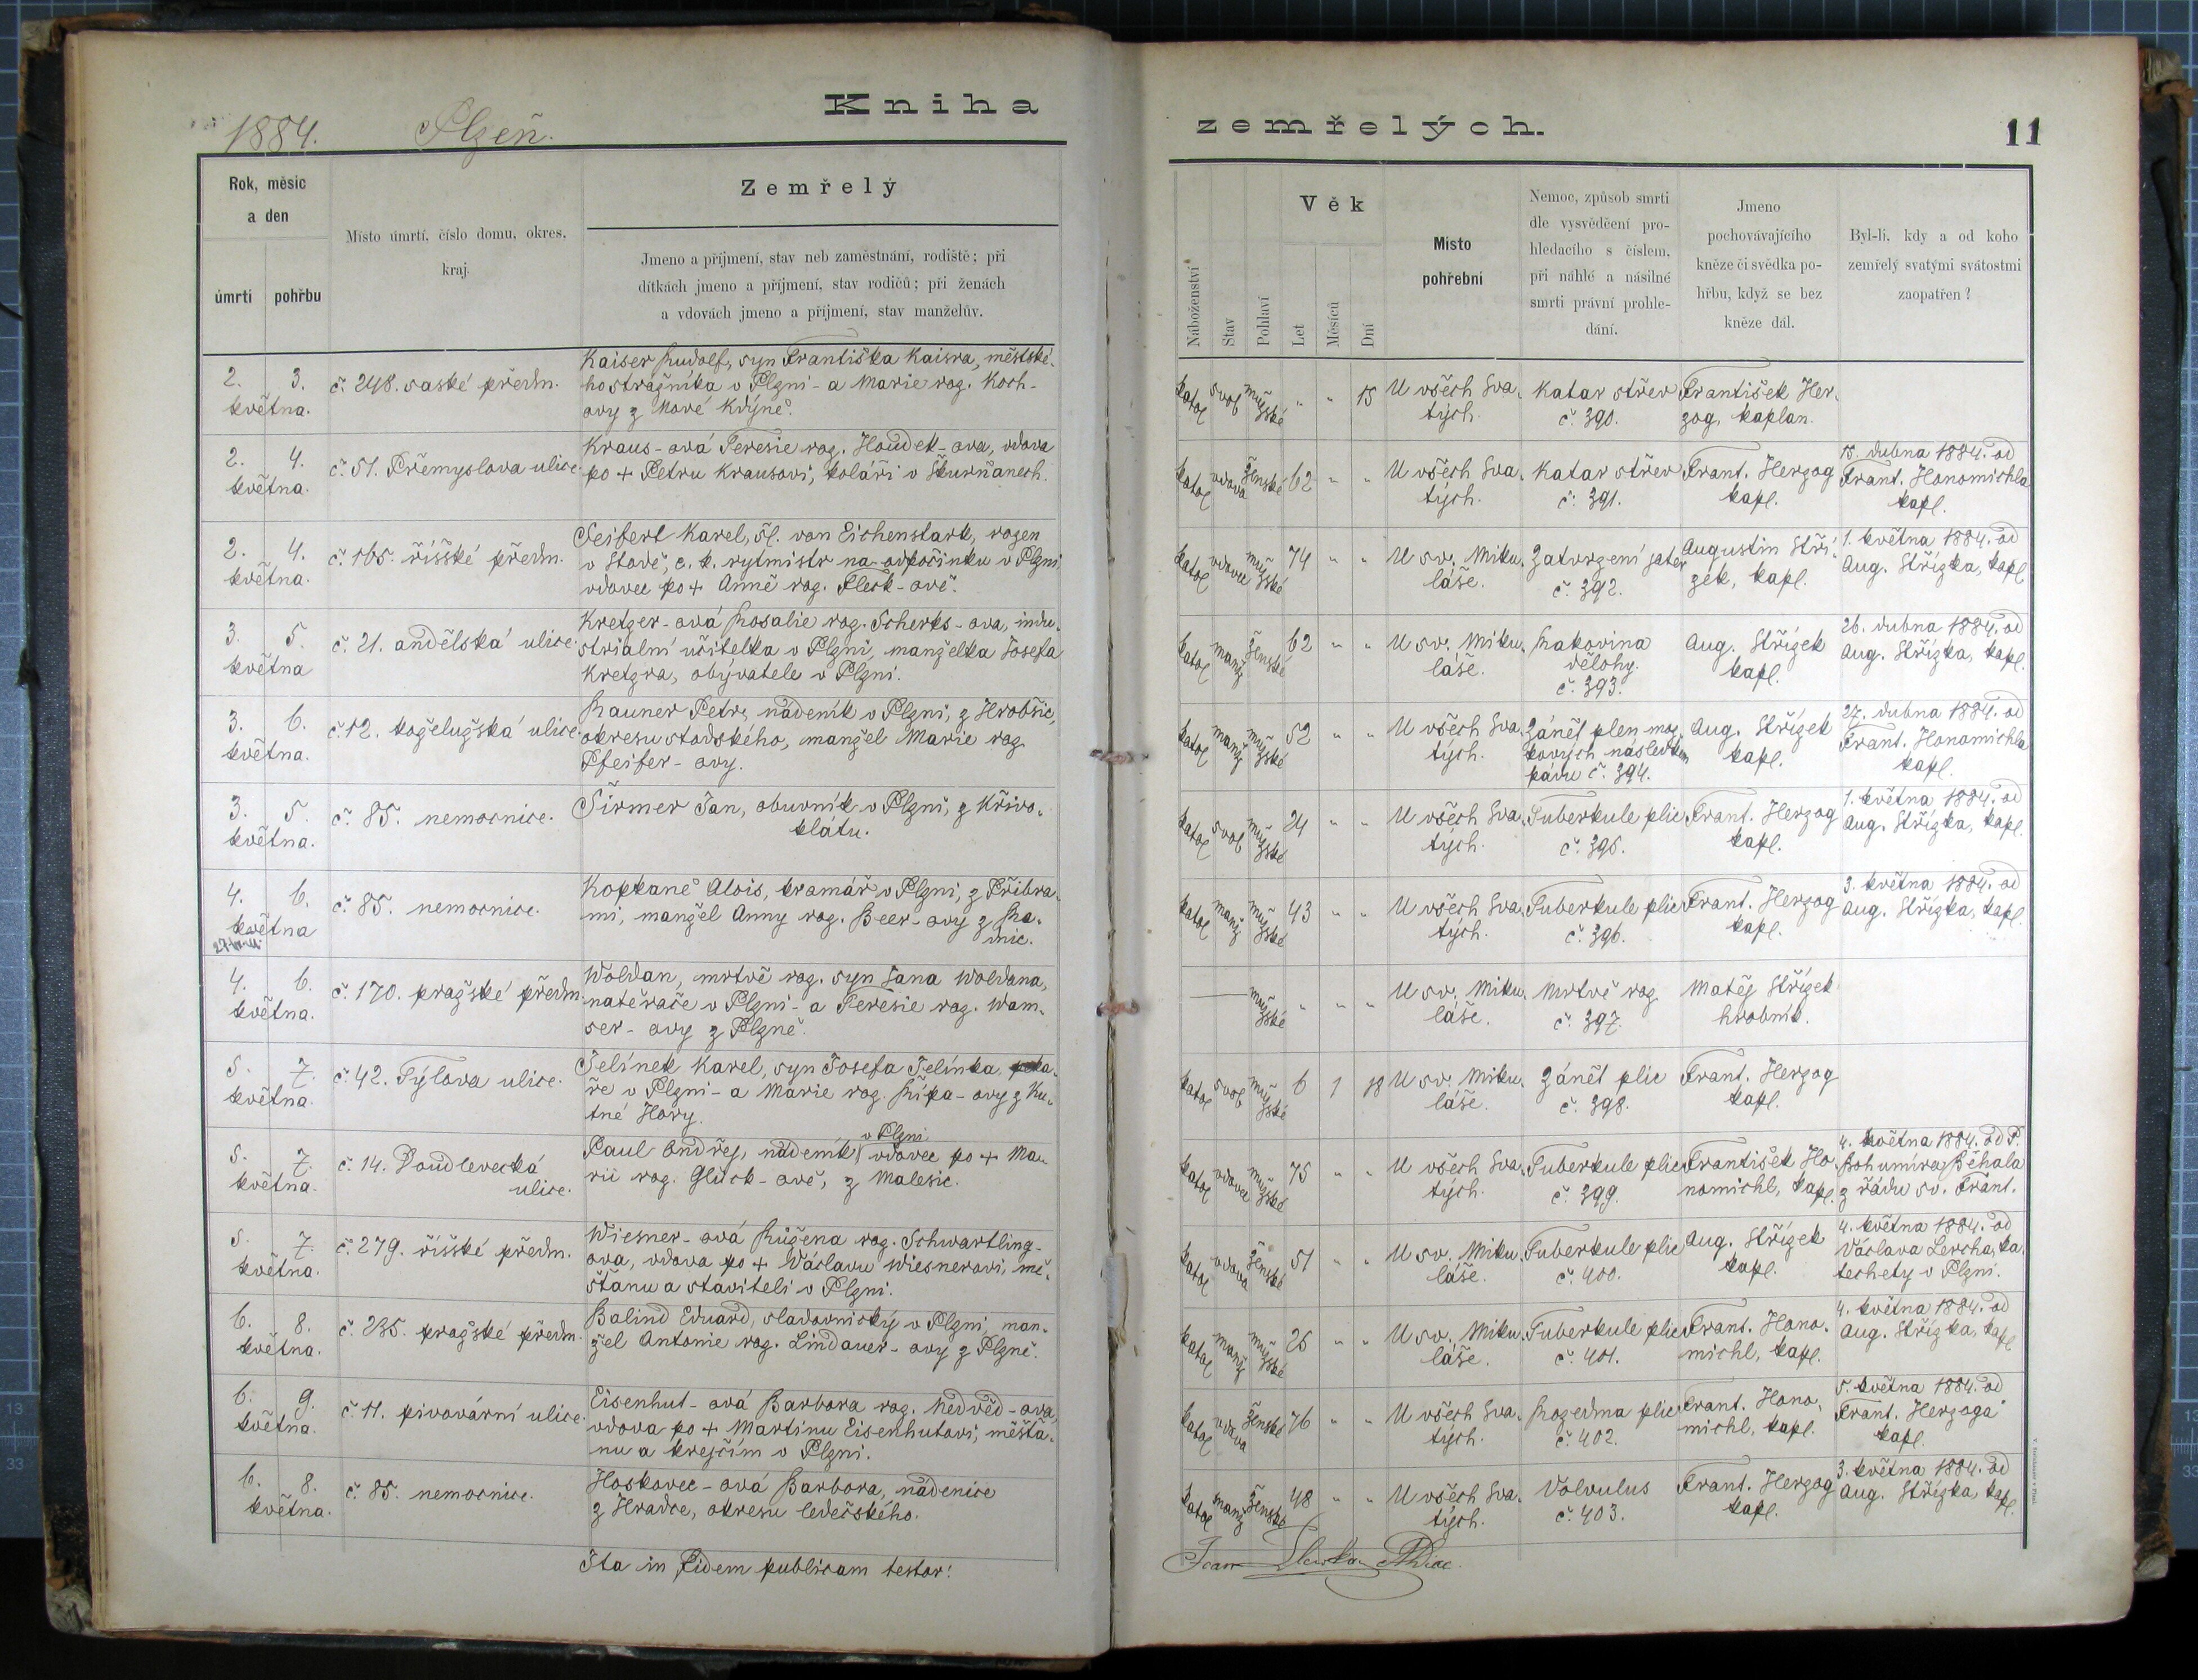 Kniha
1884. Plzeň.
Rok, měsíc
a den
úmrtí
pohřbu
Místo úmrtí, číslo domu, okres,
kraj.
Zemřelý
Jmeno a příjmení, stav neb zaměstnání, rodiště; při
dítkách jmeno a příjmení, stav rodičů; při ženách
a vdovách jmeno a příjmení, stav manželův.
2. 3.
května.
č. 248. saské předm.
Kaiser Rudolf, syn Františka Kaisra, městské-
ho strážníka v Plzni - a Marie roz. Koch-
ovy z Nové Kdýně.
2. 4.
května.
č. 51. Přemyslova ulice.
Kraus-ová Teresie roz. Houdek-ova, vdova
po + Petru Krausovi, koláři v Škurňanech.
2. 4.
května.
č. 165. říšské předm.
Seifert Karel, šl. von Eichenstark, rozen
v Stodě, c. k. rytmistr na odpočinku v Plzni
vdovec po + Anně roz. Fleck-ově.
3. 5.
května
č. 21. andělská ulice.
Kretzer-ová Rosalie roz. Scherks-ova, indu-
strialní učitelka v Plzni, manželka Josefa
Kretzra, obývatele v Plzni.
3. 6.
května.
č. 12. koželužská ulice.
Rauner Petr, nádeník v Plzni, z Hrobšic,
okresu stodského, manžel Marie roz.
Pfeifer-ovy.
3. 5.
května.
č. 85. nemocnice.
Širmer Jan, obuvník v Plzni, z Křivo-
klátu.
4. 6.
května
č. 85. nemocnice.
Kopkaně Alois, kramář v Plzni, z Příbra-
mi, manžel Anny roz. Beer-ovy z Ra-
dnic.
4. 6.
května.
č. 170. pražské předm.
Woldan, mrtvě roz. syn Jana Woldana,
natěrače v Plzni - a Teresie roz. Wam-
ser-ovy z Plzně.
5. 7.
května.
č. 42. Týlova ulice.
Jelínek Karel, syn Josefa Jelínka, peka-
ře v Plzni - a Marie roz. Řípa-ovy z Ku-
tné Hory.
5. 7.
května.
č. 14. Doudlevecká
ulice.
v Plzni
Paul Ondřej, nádeník, vdovec po + Ma-
rii roz. Glück-ově, z Malesic.
5. 7.
května.
č. 279. říšské předm.
Wiesner-ová Růžena roz. Schwartling-
ova, vdova po + Václavu Wiesnerovi, mě-
šťanu a staviteli v Plzni.
6. 8.
května.
č. 235. pražské předm.
Balind Eduard, sladovnický v Plzni, man-
žel Antonie roz. Lindauer-ovy z Plzně.
6. 9.
května.
č. 11. pivovární ulice.
Eisenhut-ová Barbora roz. Nedvěd-ova,
vdova po + Martinu Eisenhutovi, měšťa-
nu a krejčím v Plzni.
6. 8.
května.
č. 85. nemocnice.
Hoskovec-ová Barbora, nádenice
z Hradce, okresu ledečského.
Ita in fidem publicam testor:
zemřelých.
11
Náboženství
Stav
Pohlaví
Věk
Let
Měsíců
Dní
Místo
pohřební
Nemoc, způsob smrti
dle vysvědčení pro-
hledacího s číslem,
při náhlé a násilné
smrti právní prohle-
dání.
Jmeno
pochovávajícího
kněze či svědka po-
hřbu, když se bez
kněze dál.
Byl-li, kdy a od koho
zemřelý svatými svátostmi
zaopatřen?
katol svob mužské " " 15
U všech Sva-
tých.
Katar střev
č. 390.
František Her-
zog, kaplan.
katol vdova ženské 62 " "
U všech Sva-
tých.
Katar střev
č. 391.
Frant. Herzog
kapl.
15. dubna 1884. od
Frant. Honomichla
kapl.
katol vdovec mužské 74 " "
U sv. Miku-
láše.
Zatvrzení jater
č. 392.
Augustin Stří-
zek, kapl.
1. května 1884. od
Aug. Střízka, kapl.
katol manž ženské 62 " "
U sv. Miku-
láše.
Rakovina
dělohy.
č. 393.
Aug. Střízek
kapl.
26. dubna 1884. od
Aug. Střízka, kapl.
katol manž mužské 52 " "
U všech Sva-
tých.
Zánět plen moz-
kových následkem
pádu č. 394.
Aug. Střízek
kapl.
27. dubna 1884. od
Frant. Honomichla
kapl.
katol svob mužské 24 " "
U všech Sva-
tých.
Tuberkule plic
č. 395.
Frant. Herzog
kapl.
1. května 1884. od
Aug. Střízka, kapl.
katol manž mužské 43 " "
U všech Sva-
tých.
Tuberkule plic
č. 396.
Frant. Herzog
kapl.
3. května 1884. od
Aug. Střízka, kapl.
mužské " " "
U sv. Miku-
láše.
Mrtvě roz.
č. 397.
Matěj Střízek
hrobník.
katol svob mužské 6 1 18
U sv. Miku-
láše.
Zánět plic
č. 398.
Frant. Herzog
kapl.
katol vdovec mužské 75 " "
U všech Sva-
tých.
Tuberkule plic
č. 399.
František Ho-
nomichl, kapl.
4. května 1884. od P.
Bohumíra Běhala
z řádu sv. Frant.
katol vdova ženské 51 " "
U sv. Miku-
láše.
Tuberkule plic
č. 400.
Aug. Střízek
kapl.
4. května 1884. od
Václava Lercha, ka-
techety v Plzni.
katol manž mužské 26 " "
U sv. Miku-
láše.
Tuberkule plic
č. 401.
Frant. Hono-
michl, kapl.
4. května 1884. od
Aug. Střízka, kapl.
katol vdova ženské 76 " "
U všech Sva-
tých.
Rozedma plic
č. 402.
Frant. Hono-
michl, kapl.
5. května 1884. od
Frant. Herzoga
kapl.
katol manž ženské 48 " "
U všech Sva-
tých.
Volvulus
č. 403.
Frant. Herzog
kapl.
3. května 1884. od
Aug. Střízka, kapl.